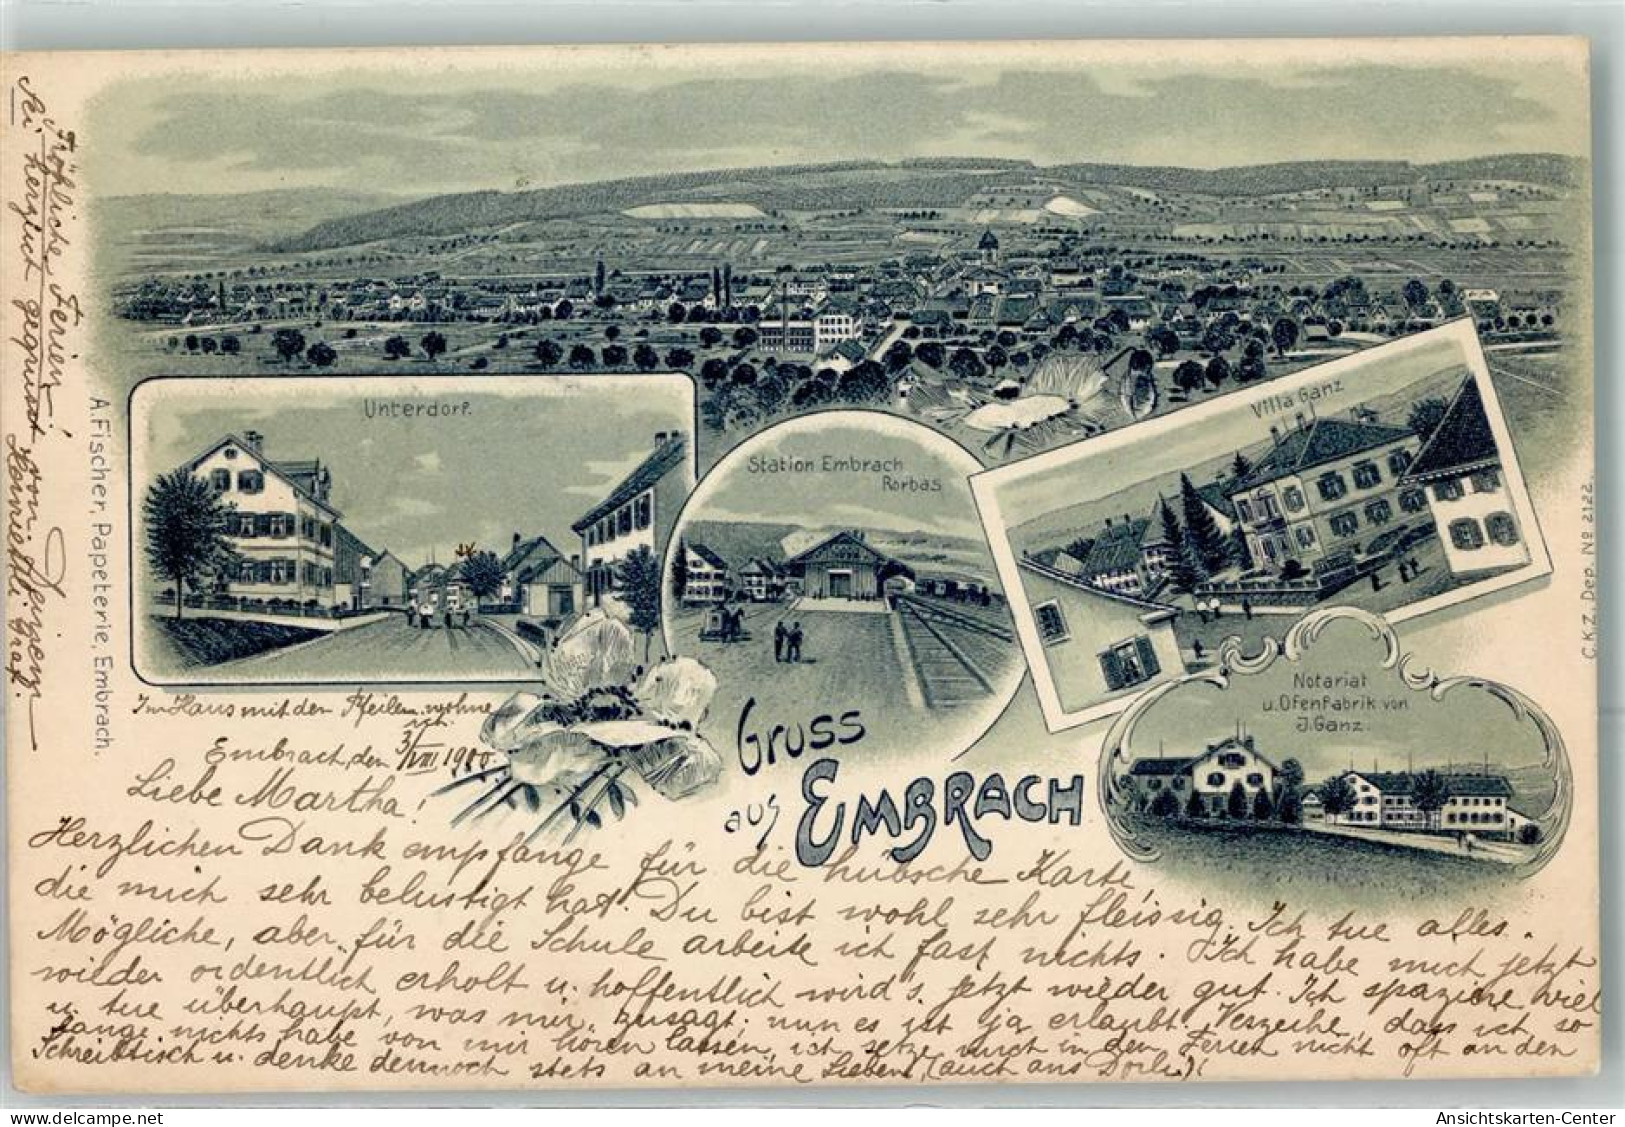 Unterdorf.
Station Embrach
Rorbas
Villa Ganz
Notariat
u. Ofenfabrik von
J. Ganz.
Gruss
aus EMBRACH
A. Fischer, Papeterie, Embrach.
C.K.Z. Dep. № 2122.
Im Haus mit den Pfeilen wohne
ich.
Embrach, den 3/VIII 1900.
Liebe Martha!
Herzlichen Dank empfange für die hübsche Karte,
die mich sehr belustigt hat. Du bist wohl sehr fleissig. Ich tue alles
Mögliche, aber für die Schule arbeite ich fast nichts. Ich habe mich jetzt
wieder ordentlich erholt u. hoffentlich wird's jetzt wieder gut. Ich spaziere viel
u. tue überhaupt, was mir zusagt; nun es ist ja erlaubt. Verzeihe, dass ich so
lange nichts habe von mir hören lassen, ich setze mich in den Ferien nicht oft an den
Schreibtisch u. denke dennoch stets an meine Lieben, (auch ans Dorli)!
Fröhliche Ferien!
Sei herzlich gegrüsst von Deiner
Henriette Graf.
Ansichtskarten-Center